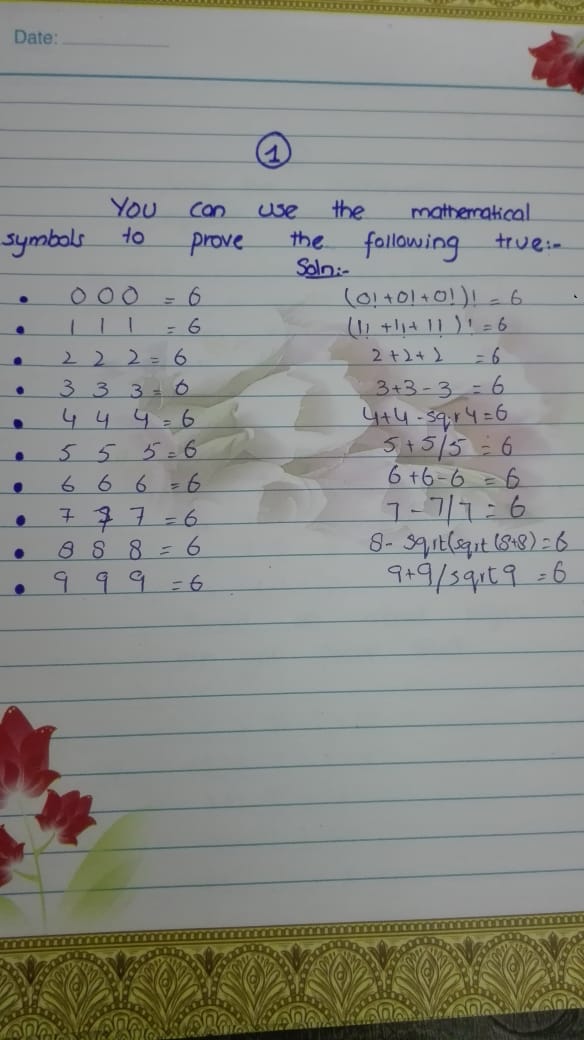 Date:
1
You can use the mathematical
symbols to prove the following true:-
Soln:-
• 0 0 0 = 6 (0! + 0! + 0!)! = 6
• 1 1 1 = 6 (1! + 1! + 1!)! = 6
• 2 2 2 = 6 2 + 2 + 2 = 6
• 3 3 3 = 6 3 + 3 - 3 = 6
• 4 4 4 = 6 4 + 4 - sqrt 4 = 6
• 5 5 5 = 6 5 + 5/5 = 6
• 6 6 6 = 6 6 + 6 - 6 = 6
• 7 7 7 = 6 7 - 7/7 = 6
• 8 8 8 = 6 8 - sqrt(sqrt(8+8) = 6
• 9 9 9 = 6 9+9/sqrt 9 = 6